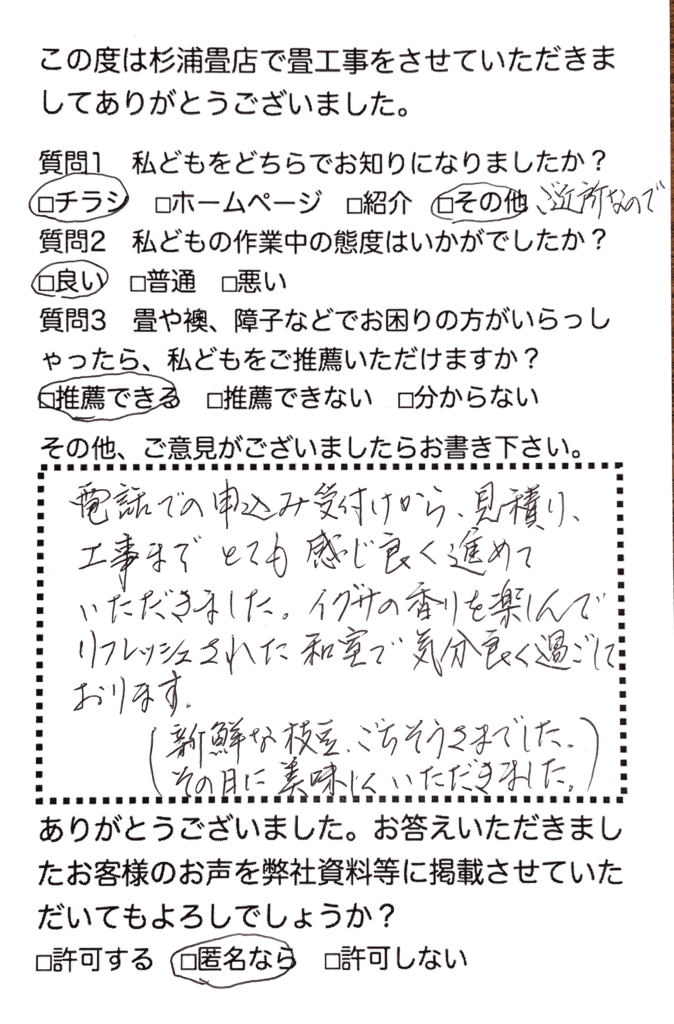 この度は杉浦畳店で畳工事をさせていただきま
してありがとうございました。
質問1　私どもをどちらでお知りになりましたか？
□チラシ　□ホームページ　□紹介　□その他 ご近所なので
質問2　私どもの作業中の態度はいかがでしたか？
□良い　□普通　□悪い
質問3　畳や襖、障子などでお困りの方がいらっし
ゃったら、私どもをご推薦いただけますか？
□推薦できる　□推薦できない　□分からない
その他、ご意見がございましたらお書き下さい。
電話での申込み受付けから、見積り、
工事まで とても 感じ良く進めて
いただきました。イグサの香りを楽しんで
リフレッシュされた和室で気分良く過ごして
おります。
(新鮮な枝豆、ごちそうさまでした。
その日に美味しくいただきました。)
ありがとうございました。お答えいただきまし
たお客様のお声を弊社資料等に掲載させていた
だいてもよろしでしょうか？
□許可する　□匿名なら　□許可しない